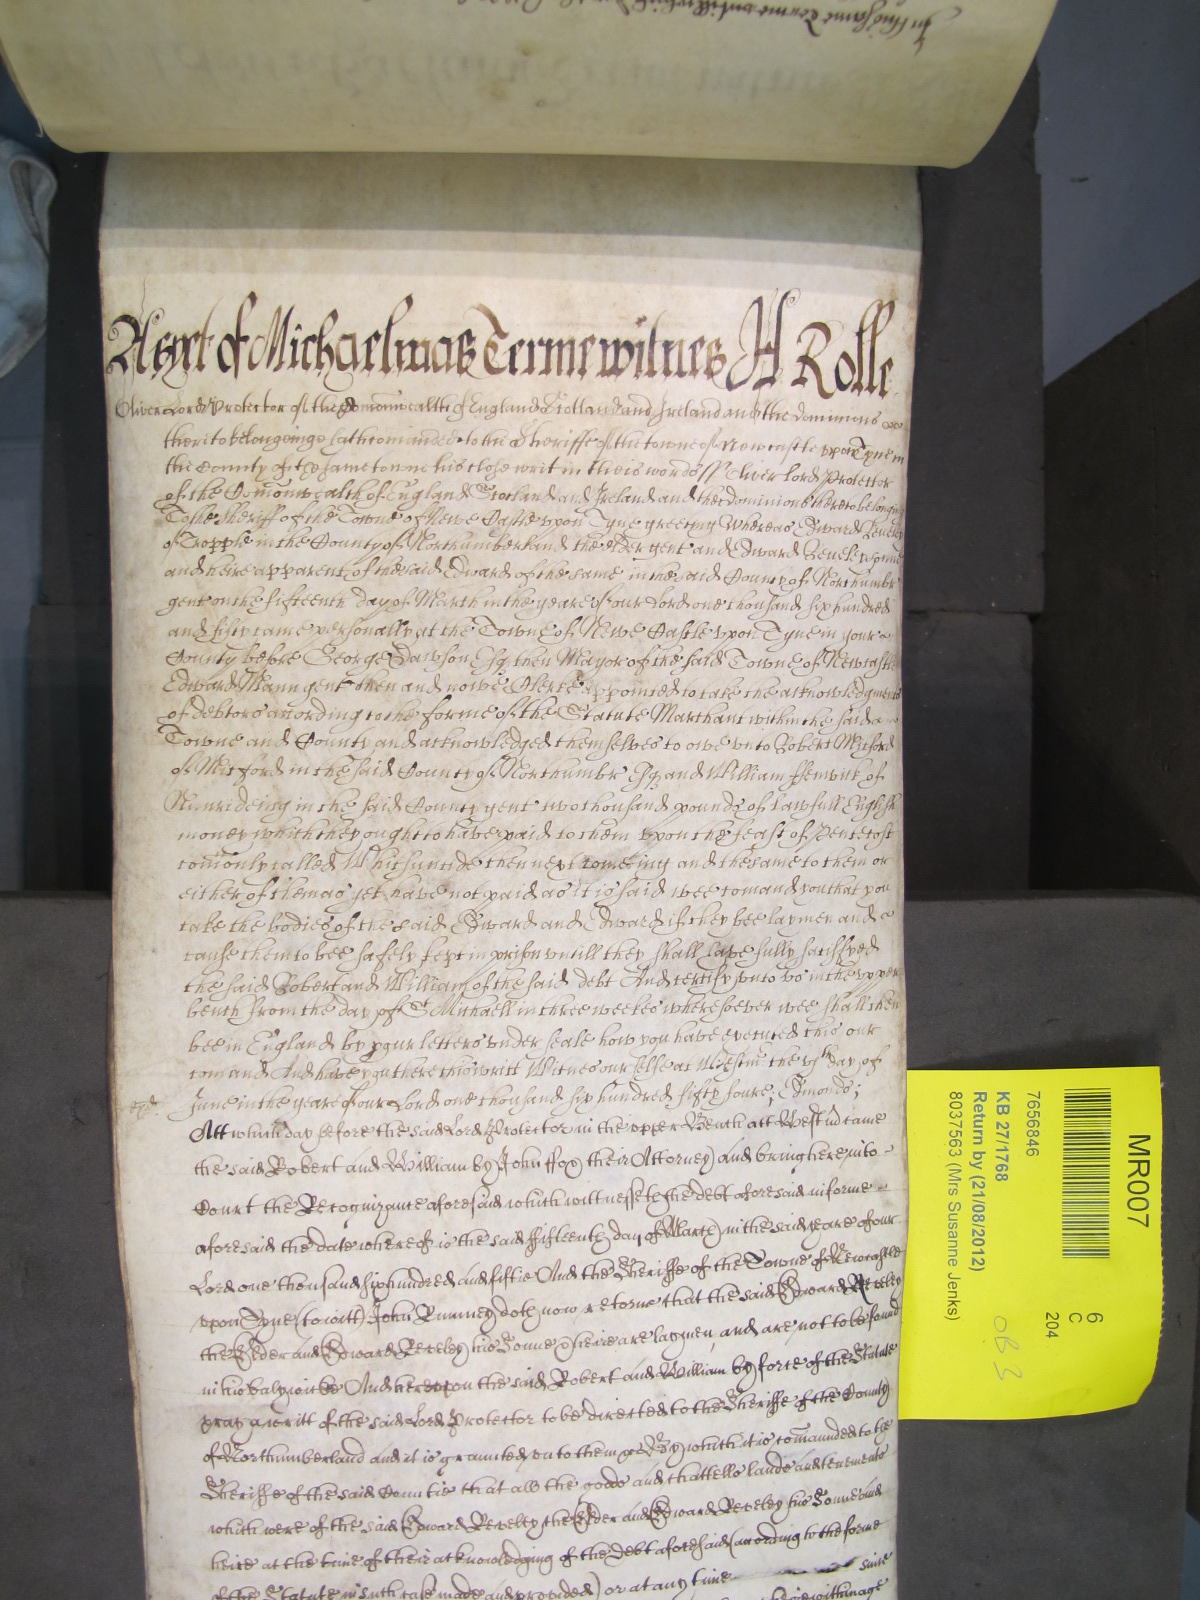 As yet of Michaelmas Terme witnes H Rolle
Oliver Lord Protector of the Comonwealth of England Scotland and Ireland and the dominions
thereto belonginge hath comanded to the Sheriffe of the towne of Newcastle upon Tyne in
the County of the same towne his close writ in theis words // Oliver lord Protector
of the Comonwealth of England Scotland and Ireland and the dominions thereto belonging
To the Sheriff of the Towne of Newe Castle upon Tyne greeting Whereas Edward
of in the County of Northumberland the elder gent and Edward
and heire apparent of the said Edward of the same in the said County of Northumbr
gent on the fifteenth day of March in the yeare of our Lord one thousand six hundred
and fifty came personally at the Towne of Newe Castle upon Tyne in your
County before George Dawson Esq then Mayor of the said Towne of Newcastle
Edward Mann gent then and nowe Clerke appointed to take the acknowledgments
of debtors according to the forme of the Statute Marchant within the said
Towne and County and acknowledged themselves to owe unto Robert Mitford
of Mitford in the said County of Northumbr Esq and William ffenwick of
Nunrideing in the said County gent two thousand pounds of lawfull English
money which they ought to have paid to them upon the feast of Pentecost
comonly called Whitsuntide then next comeing and the same to them or
either of them as yet have not paid as it is said wee comand you that you
take the bodies of the said Edward and Edward if they bee laymen and
cause them to bee safely kept in prison untill they shall have fully satisfyed
the said Robert and William of the said debt And certify unto us in the upper
bench from the day of St Michaell in three weekes wheresoever wee shall then
bee in England by your letters under seale how you have executed this our
comand And have you there this writt Witnes our selfe at Westmr the day of
June in the yeare of our Lord one thousand six hundred fifty foure; Edmonds;
Att which day before the said Lord Protector in the upper Bench att Westm came
the said Robert and William by John ffox their Attorney and bring here into
Court the Recognizance aforesaid which wittnesseth the debt aforesaid in forme
aforesaid the date whereof is the said ffifteenth day of March in the said yeare of our
Lord one thousand six hundred and fiftie And the Sheriffe of the Towne of Newcastle
upon Tyne (to witt) John Rumney doth now retorne that the said Edward Reveley
the Elder and Edward Reveley his Sonne & heire are laymen and are not to be found
in his balywicke And hereupon the said Robert and William by force of the Statute
pray a writt of the said Lord Protector to be directed to the Sheriffe of the County
of Northumberland and it is graunted unto them &c By which it is comaunded to the
Sheriffe of the said Countie that all the goods and chattells lands and tenements
which were of the said Edward Reveley the Elder and Edward Reveley his Sonne and
heire at the time of their acknowledging of the Debt aforesaid (according to the forme
of the Statute in such case made and provided) or at any time since
MR007
6
C
204
7656846
KB 27/1768
Return by (21/08/2012)
8037563 (Mrs Susanne Jenks)
OB 3